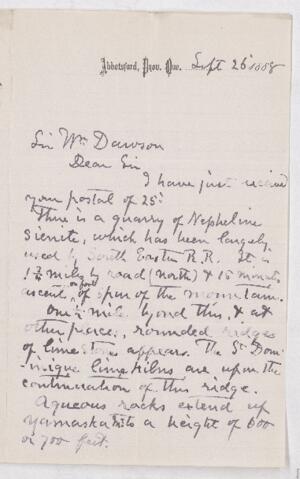 Abbotsford, Prov. Que. Sept 26 1888
Sir Wm Dawson
Dear Sir
I have just received
your postal of 25th
There is a quarry of Nepheline
Sienite, which has been largely
used by South Eastern R.R. It is
1¼ mile by road (north) & 15 minutes
ascent, on foot, of spur of the mountain.
One ½ mile beyond this, & at
other places, rounded ridges
of limestone appears. The St Dom-
-inique lime kilns are upon the
continuation of this ridge.
Aqueous rocks extend up
Yamaska Mt to a height of 600
or 700 feet.